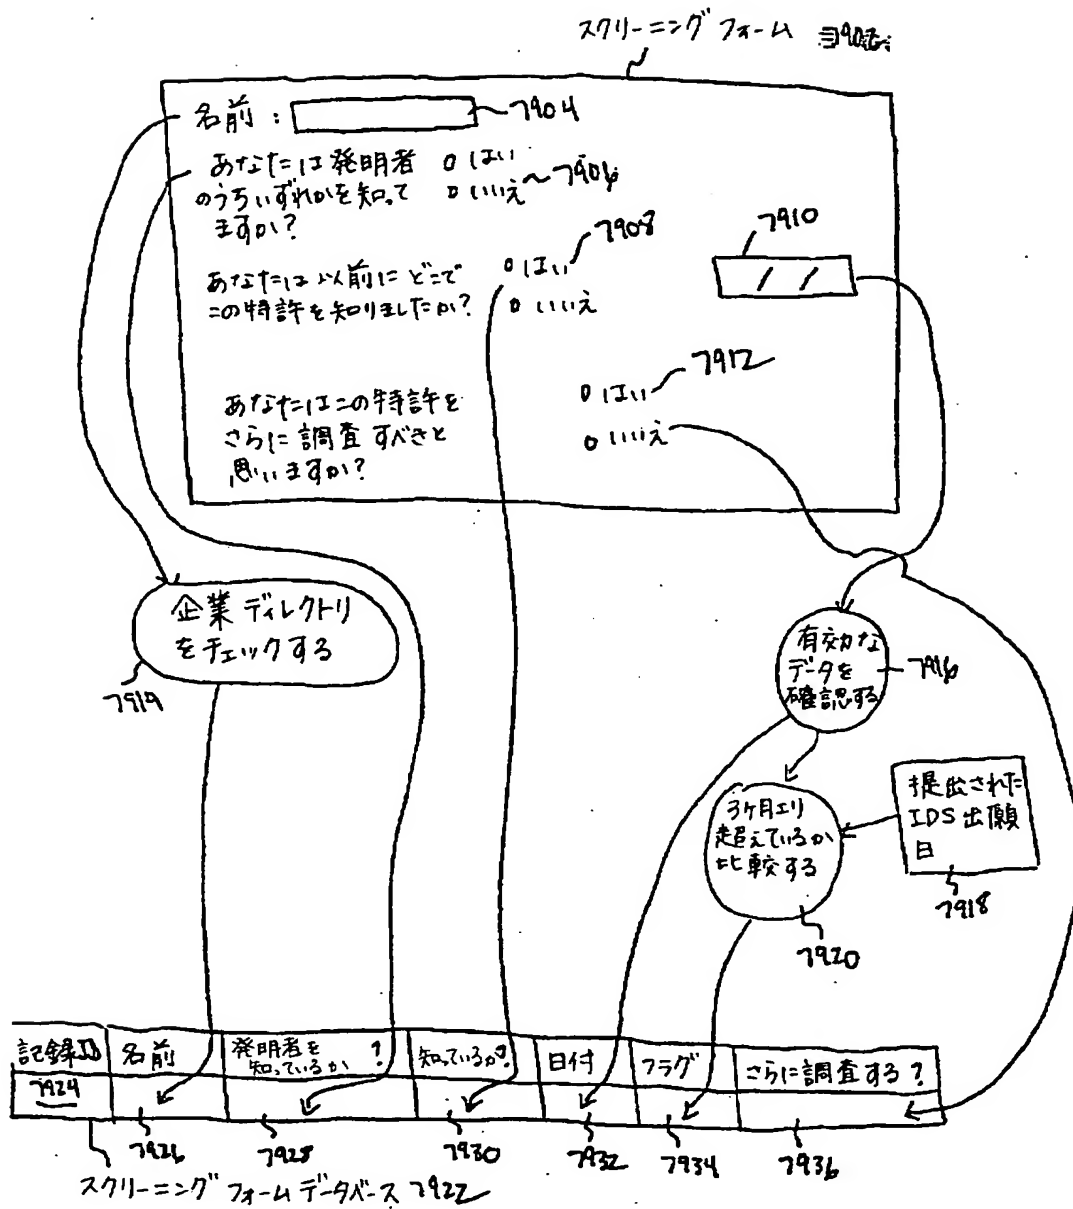 スクリーニング フォーム
名前 :
7904
あなたは発明者
のうちいずれかを知って
ますか?
はい
いいえ
7906
あなたは以前にどこで
この特許を知りましたか?
はい
いいえ
7908
7910
/ /
あなたはこの特許を
さらに調査すべきと
思いますか?
はい
いいえ
7912
企業ディレクトリ
をチェックする
7914
有効な
データを
確認する
7916
3ヶ月より
超えているか
比較する
7920
提出された
IDS出願
日
7918
記録ID
名前
発明者を
知っているか ?
知っているか?
日付
フラグ
さらに調査する?
7924
7926
7928
7930
7932
7934
7936
スクリーニング フォームデータベース 7922